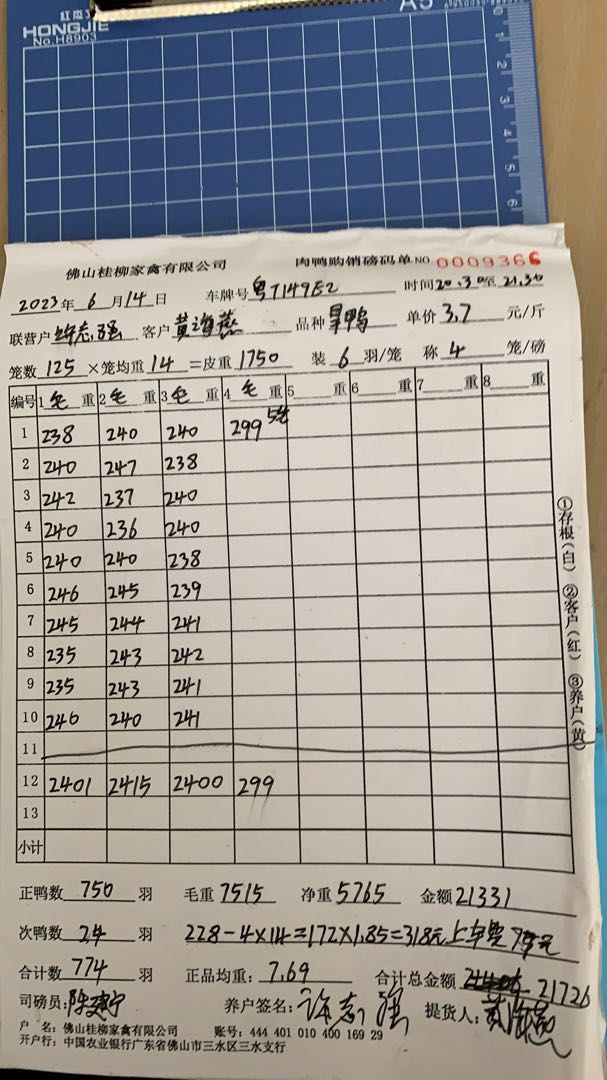 红杰
HONGJIE
No.H8903
A5
0
1
2
3
4
5
6
佛山桂柳家禽有限公司 肉鸭购销磅码单 NO 0009366
2023年 6 月 14 日 车牌号 粤T149E2 时间 20.30至 21.30
联营户 许志强 客户 黄海燕 品种 旱鸭 单价 3.7 元/斤
笼数 125 ×笼均重 14 =皮重 1750 装 6 羽/笼 称 4 笼/磅
编号 1 毛 重 2 毛 重 3 毛 重 4 毛 重 5 重 6 重 7 重 8 重
1 238 240 240 299 5笼
2 240 247 238
3 242 237 240
4 240 236 240
5 240 240 238
6 246 245 239
7 245 244 241
8 235 243 242
9 235 243 241
10 240 240 241
11
12 2401 2415 2400 299
13
小计
正鸭数 750 羽 毛重 7515 净重 5765 金额 21331
次鸭数 24 羽 228-4×14=172×1.85=318元 上车费 77元
合计数 774 羽 正品均重: 7.69 合计总金额 21726
司磅员: 养户签名: 许志强 提货人:
户 名: 佛山桂柳家禽有限公司 账号: 444 401 010 400 169 29
开户行: 中国农业银行广东省佛山市三水区三水支行
①存根(白) ②客户(红) ③养户(黄)